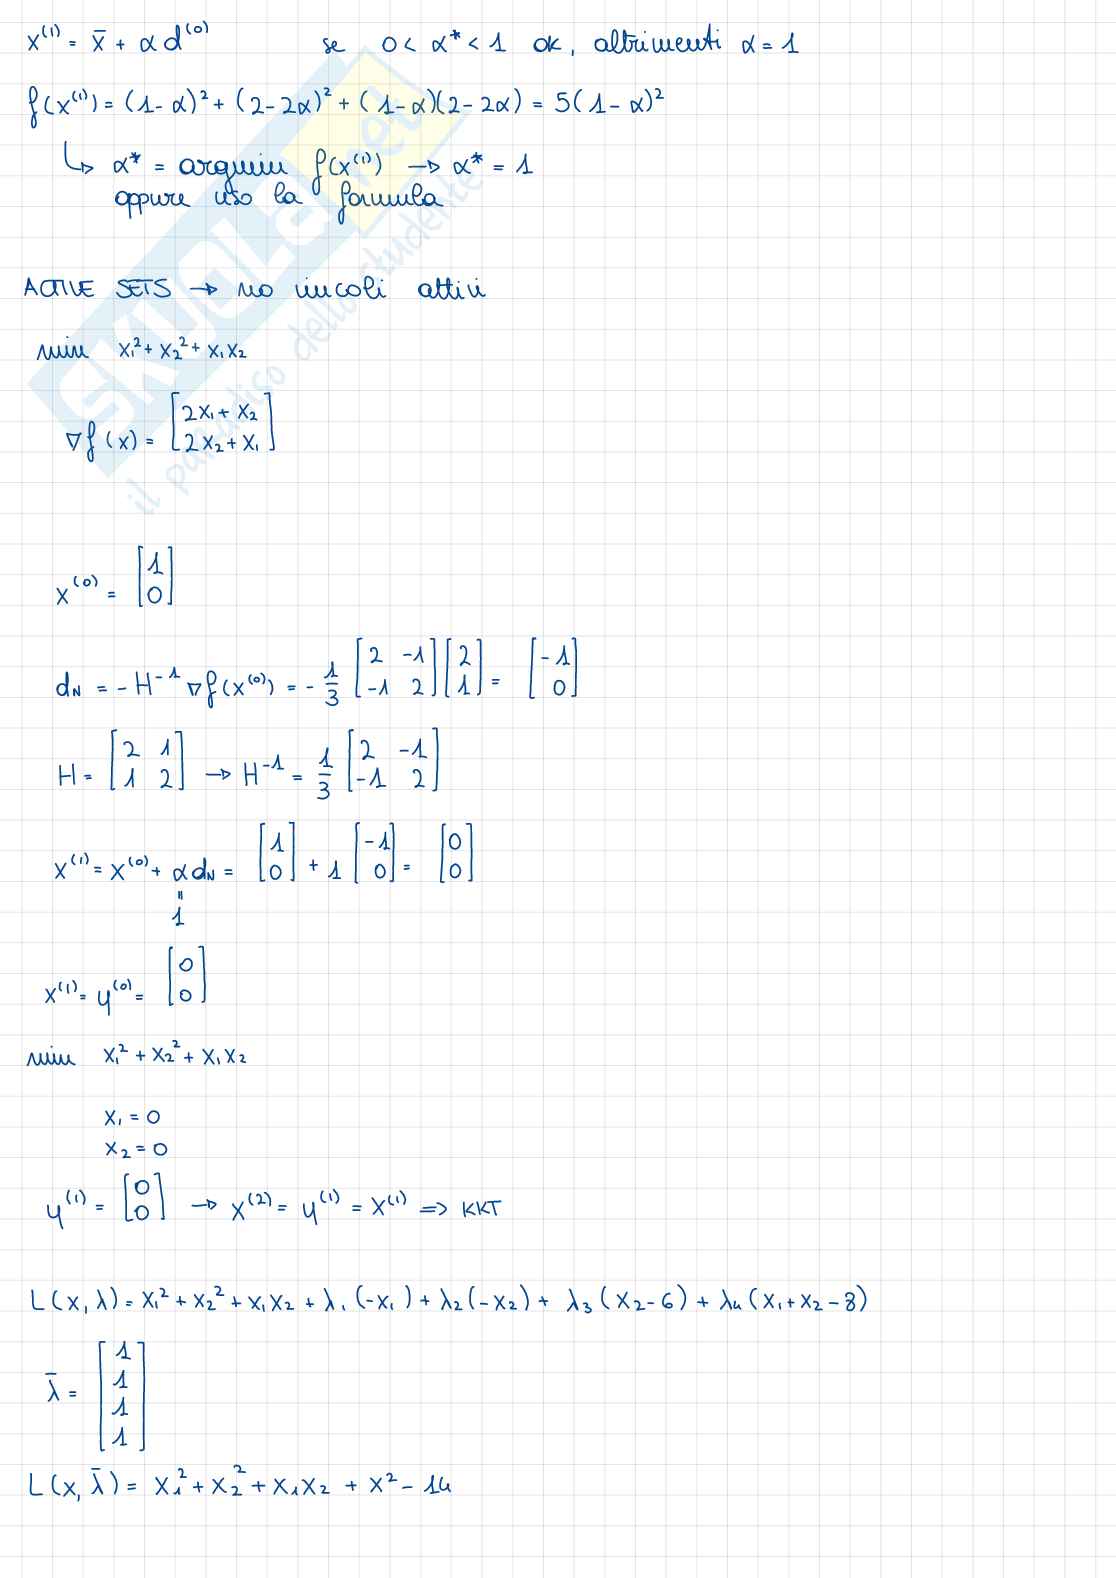 x⁽¹⁾ = x̄ + α d⁽⁰⁾ se 0 < α* < 1 ok, altrimenti α = 1
f(x⁽¹⁾) = (1-α)² + (2-2α)² + (1-α)(2-2α) = 5(1-α)²
↳ α* = argmin f(x⁽¹⁾) → α* = 1
oppure uso la formula
ACTIVE SETS → no vincoli attivi
min x₁² + x₂² + x₁x₂
∇f(x) = [2x₁ + x₂
2x₂ + x₁]
x⁽⁰⁾ = [1
0]
d_N = -H⁻¹ ∇f(x⁽⁰⁾) = - 1/3 [2 -1; -1 2] [2; 1] = [-1; 0]
H = [2 1; 1 2] → H⁻¹ = 1/3 [2 -1; -1 2]
x⁽¹⁾ = x⁽⁰⁾ + α d_N = [1; 0] + 1 [-1; 0] = [0; 0]
"
1
x⁽¹⁾ = y⁽⁰⁾ = [0; 0]
min x₁² + x₂² + x₁x₂
x₁ = 0
x₂ = 0
y⁽¹⁾ = [0; 0] → x⁽²⁾ = y⁽¹⁾ = x⁽¹⁾ => KKT
L(x, λ) = x₁² + x₂² + x₁x₂ + λ₁(-x₁) + λ₂(-x₂) + λ₃(x₂-6) + λ₄(x₁+x₂-8)
λ̄ = [1; 1; 1; 1]
L(x, λ̄) = x₁² + x₂² + x₁x₂ + x² - 14
SKUOLA.net
il paradiso dello studente